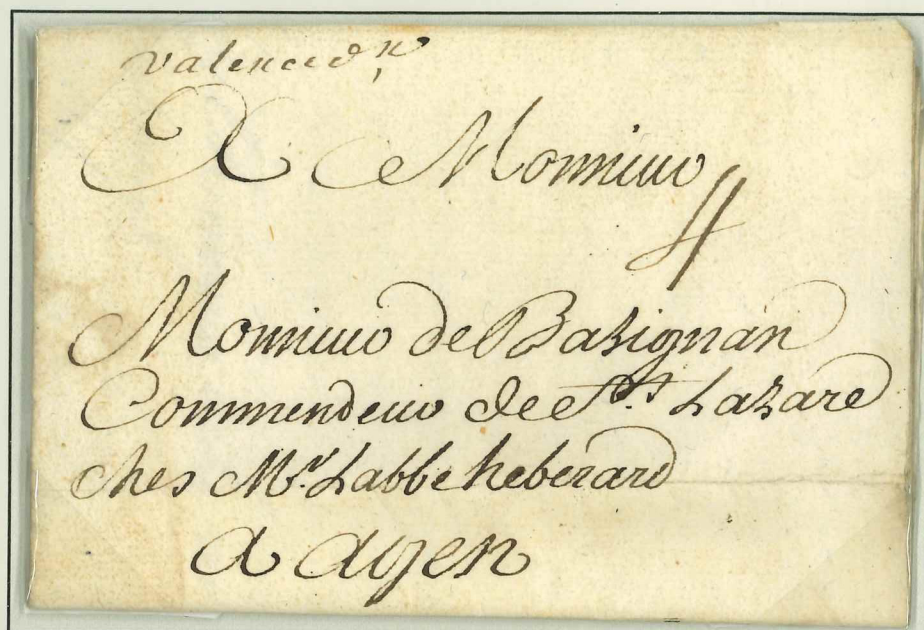 valence d'n
A Monsieur
4
Monsieur de Bazignan
Commendeur de St Lazare
ches Mr. Labbe heberard
a agen